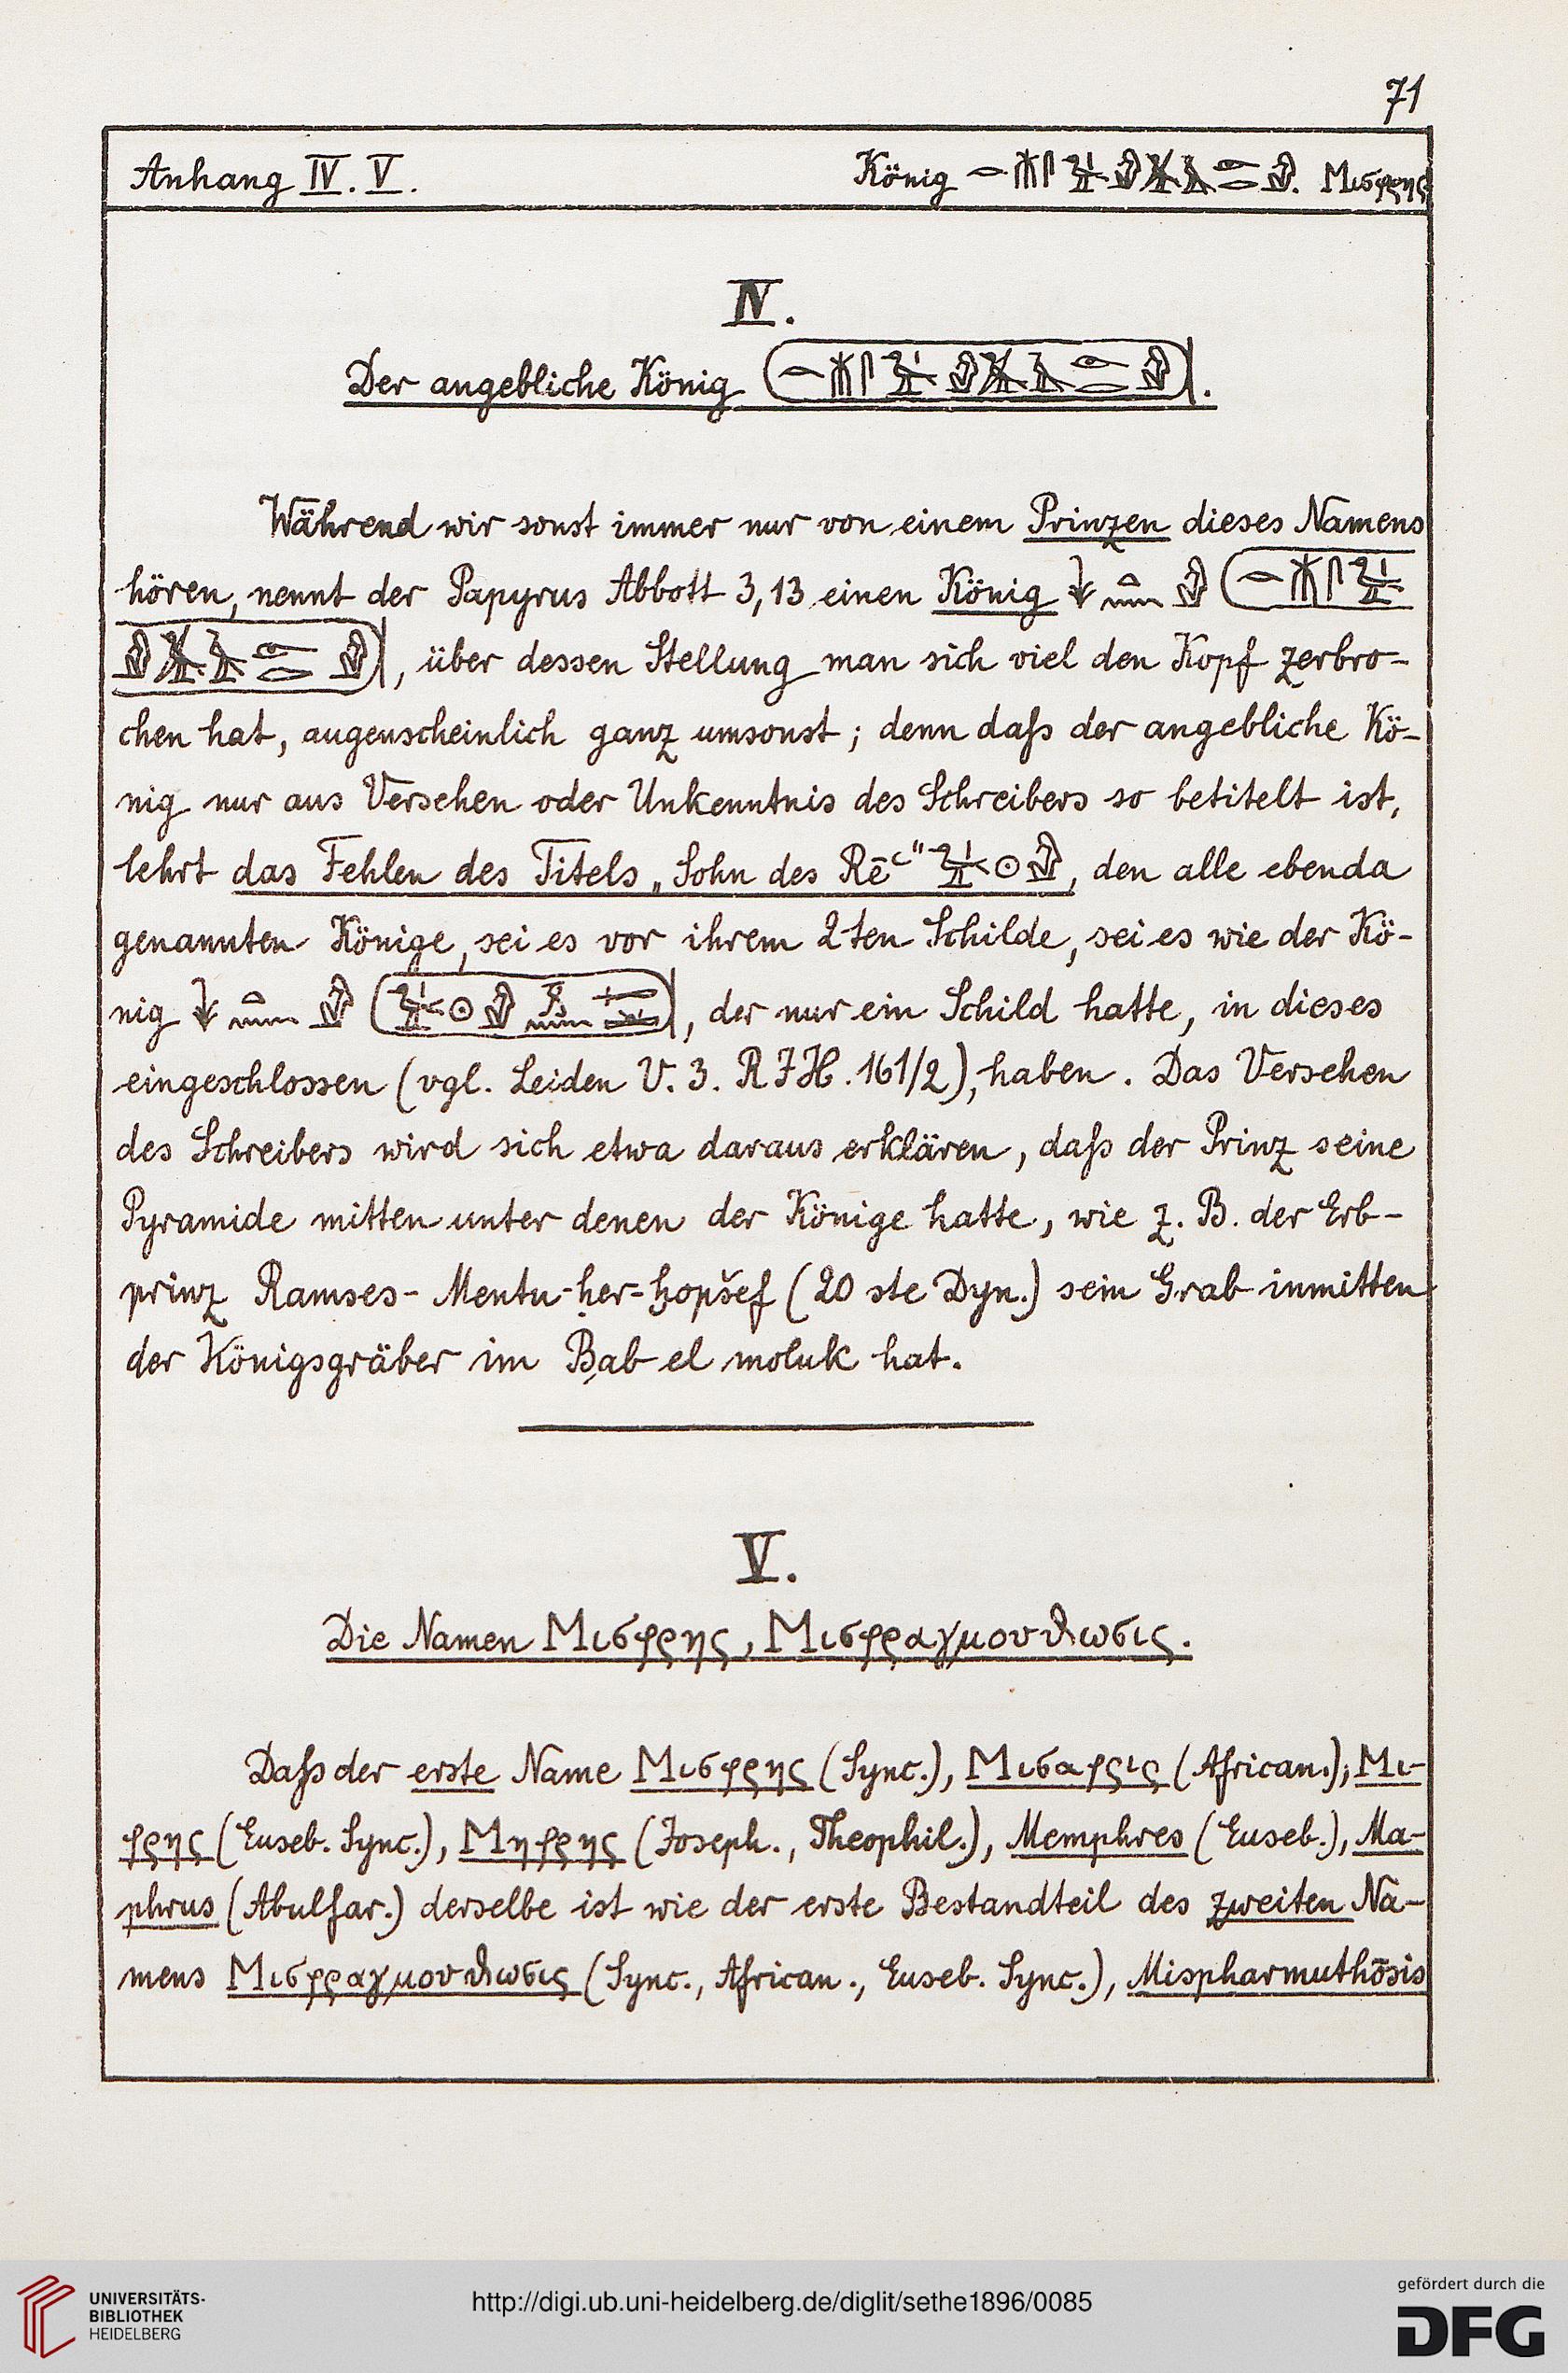 71
Anhang IV. V. König . Μισφρης
IV.
Der angebliche König .
Während wir sonst immer nur von einem Prinzen dieses Namens
hören, nennt der Papyrus Abbott 3,13 einen König
, über dessen Stellung man sich viel den Kopf zerbro-
chen hat, augenscheinlich ganz umsonst; denn daſs der angebliche Kö-
nig nur aus Versehen oder Unkenntnis des Schreibers so betitelt ist,
lehrt das Fehlen des Titels „Sohn des Rēʿ“ , den alle ebenda
genannten Könige, sei es vor ihrem 2ten Schilde, sei es wie der Kö-
nig , der nur ein Schild hatte, in dieses
eingeschlossen (vgl. Leiden V. 3. R I H. 161/2), haben. Das Versehen
des Schreibers wird sich etwa daraus erklären, daſs der Prinz seine
Pyramide mitten unter denen der Könige hatte, wie z. B. der Erb-
prinz Ramses-Mentu-ḥer-ḫopšef (20ste Dyn.) sein Grab inmitten
der Königsgräber im Bab el moluk hat.
V.
Die Namen Μισφρης, Μισφραγμουθωσις.
Daſs der erste Name Μισφρης (Sync.), Μισαφρις (African.), Μι-
φρης (Euseb. Sync.), Μηφρης (Joseph., Theophil.), Memphres (Euseb.), Ma-
phrus (Abulfar.) derselbe ist wie der erste Bestandteil des zweiten Na-
mens Μισφραγμουθωσις (Sync., African., Euseb. Sync.), Mispharmuthōsis
UNIVERSITÄTS-
BIBLIOTHEK
HEIDELBERG
http://digi.ub.uni-heidelberg.de/diglit/sethe1896/0085
gefördert durch die
DFG